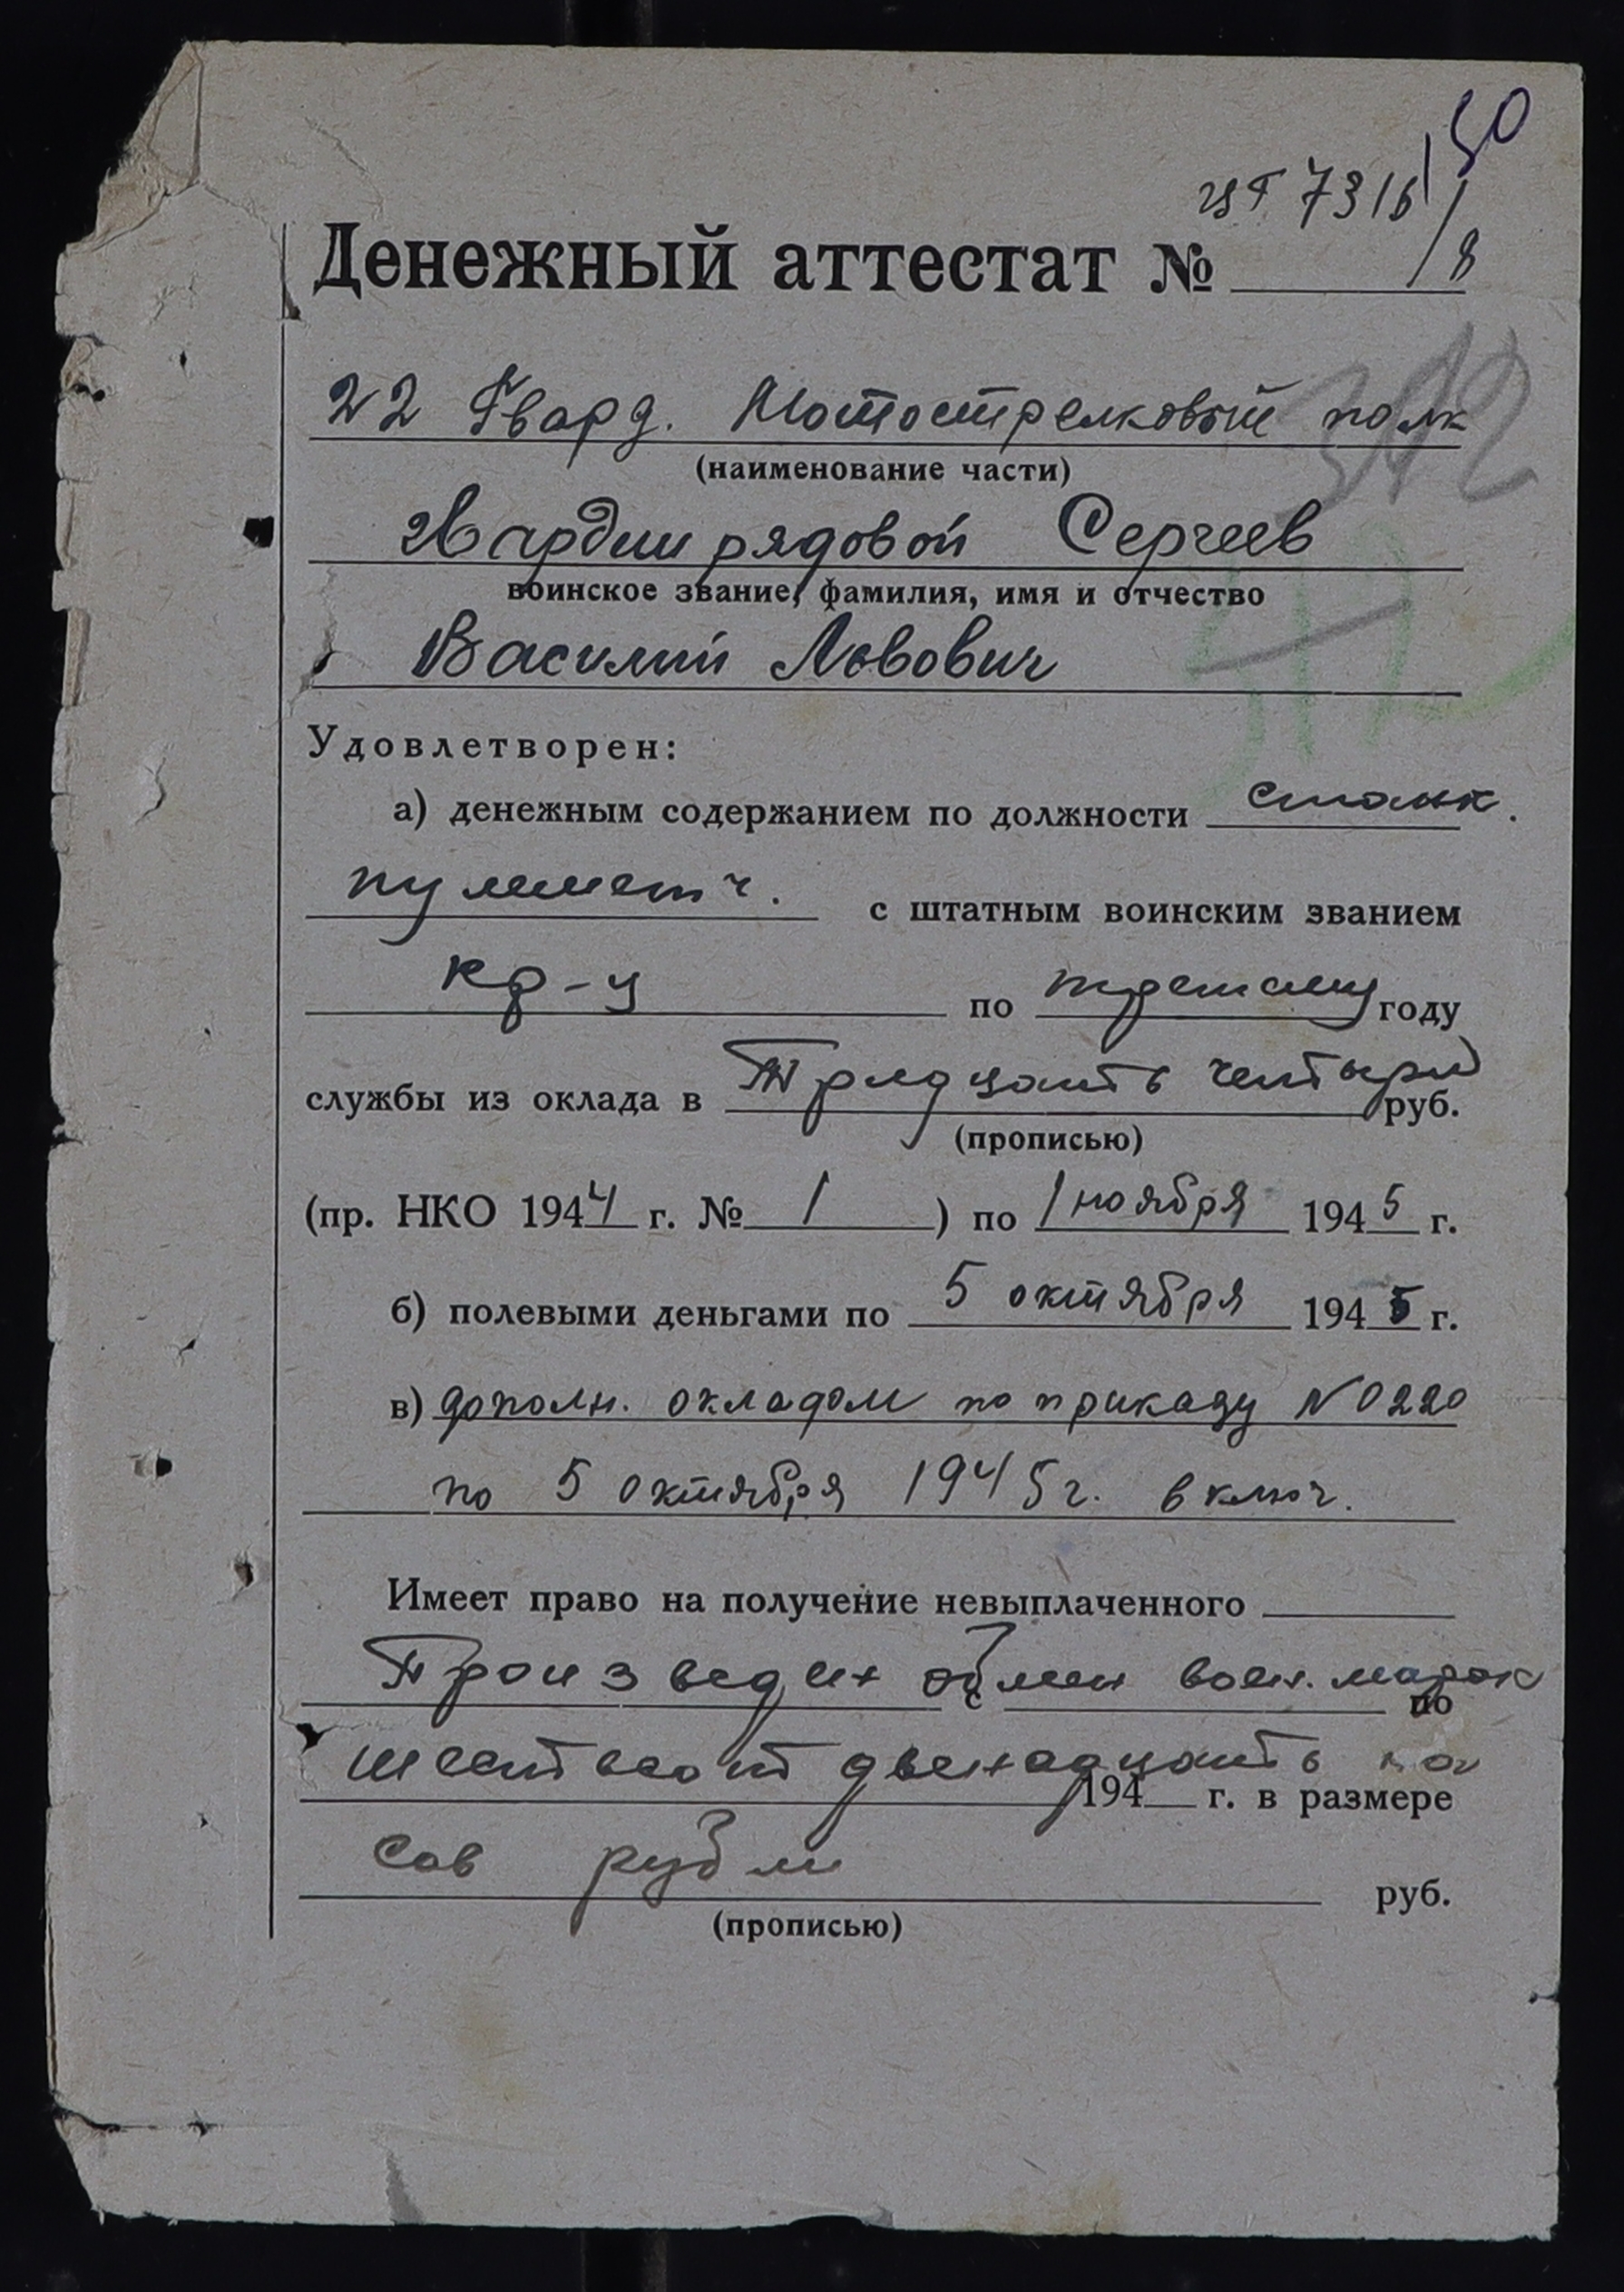 50
7316/8
Денежный аттестат №
312
22 Гвард. Мотострелковый полк
(наименование части)
Гвардии рядовой Сергеев
воинское звание, фамилия, имя и отчество
Василий Львович
Удовлетворен:
а) денежным содержанием по должности станк.
пулеметч. с штатным воинским званием
кр-ц по третьему году
службы из оклада в Тридцать четыре руб.
(прописью)
(пр. НКО 1944 г. № 1 ) по 1 ноября 1945 г.
б) полевыми деньгами по 5 октября 1945 г.
в) дополн. окладом по приказу № 0220
по 5 октября 1945 г. включ.
Имеет право на получение невыплаченного
Произведен обмен воен. марок
с по
шестьсот двенадцать на
194 г. в размере
сов рубли руб.
(прописью)